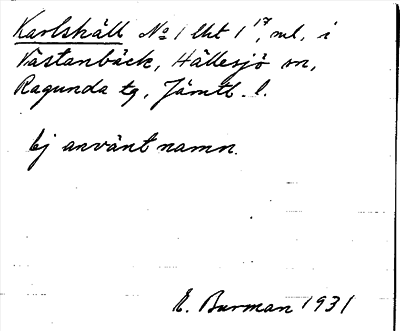 Karlshäll № 1 litt 1¹⁷, ml. i
Västanbäck, Hällesjö sn,
Ragunda tg, Jämtl. l.
Ej använt namn.
E. Burman 1931